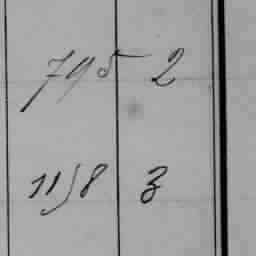 795 2
1158 3